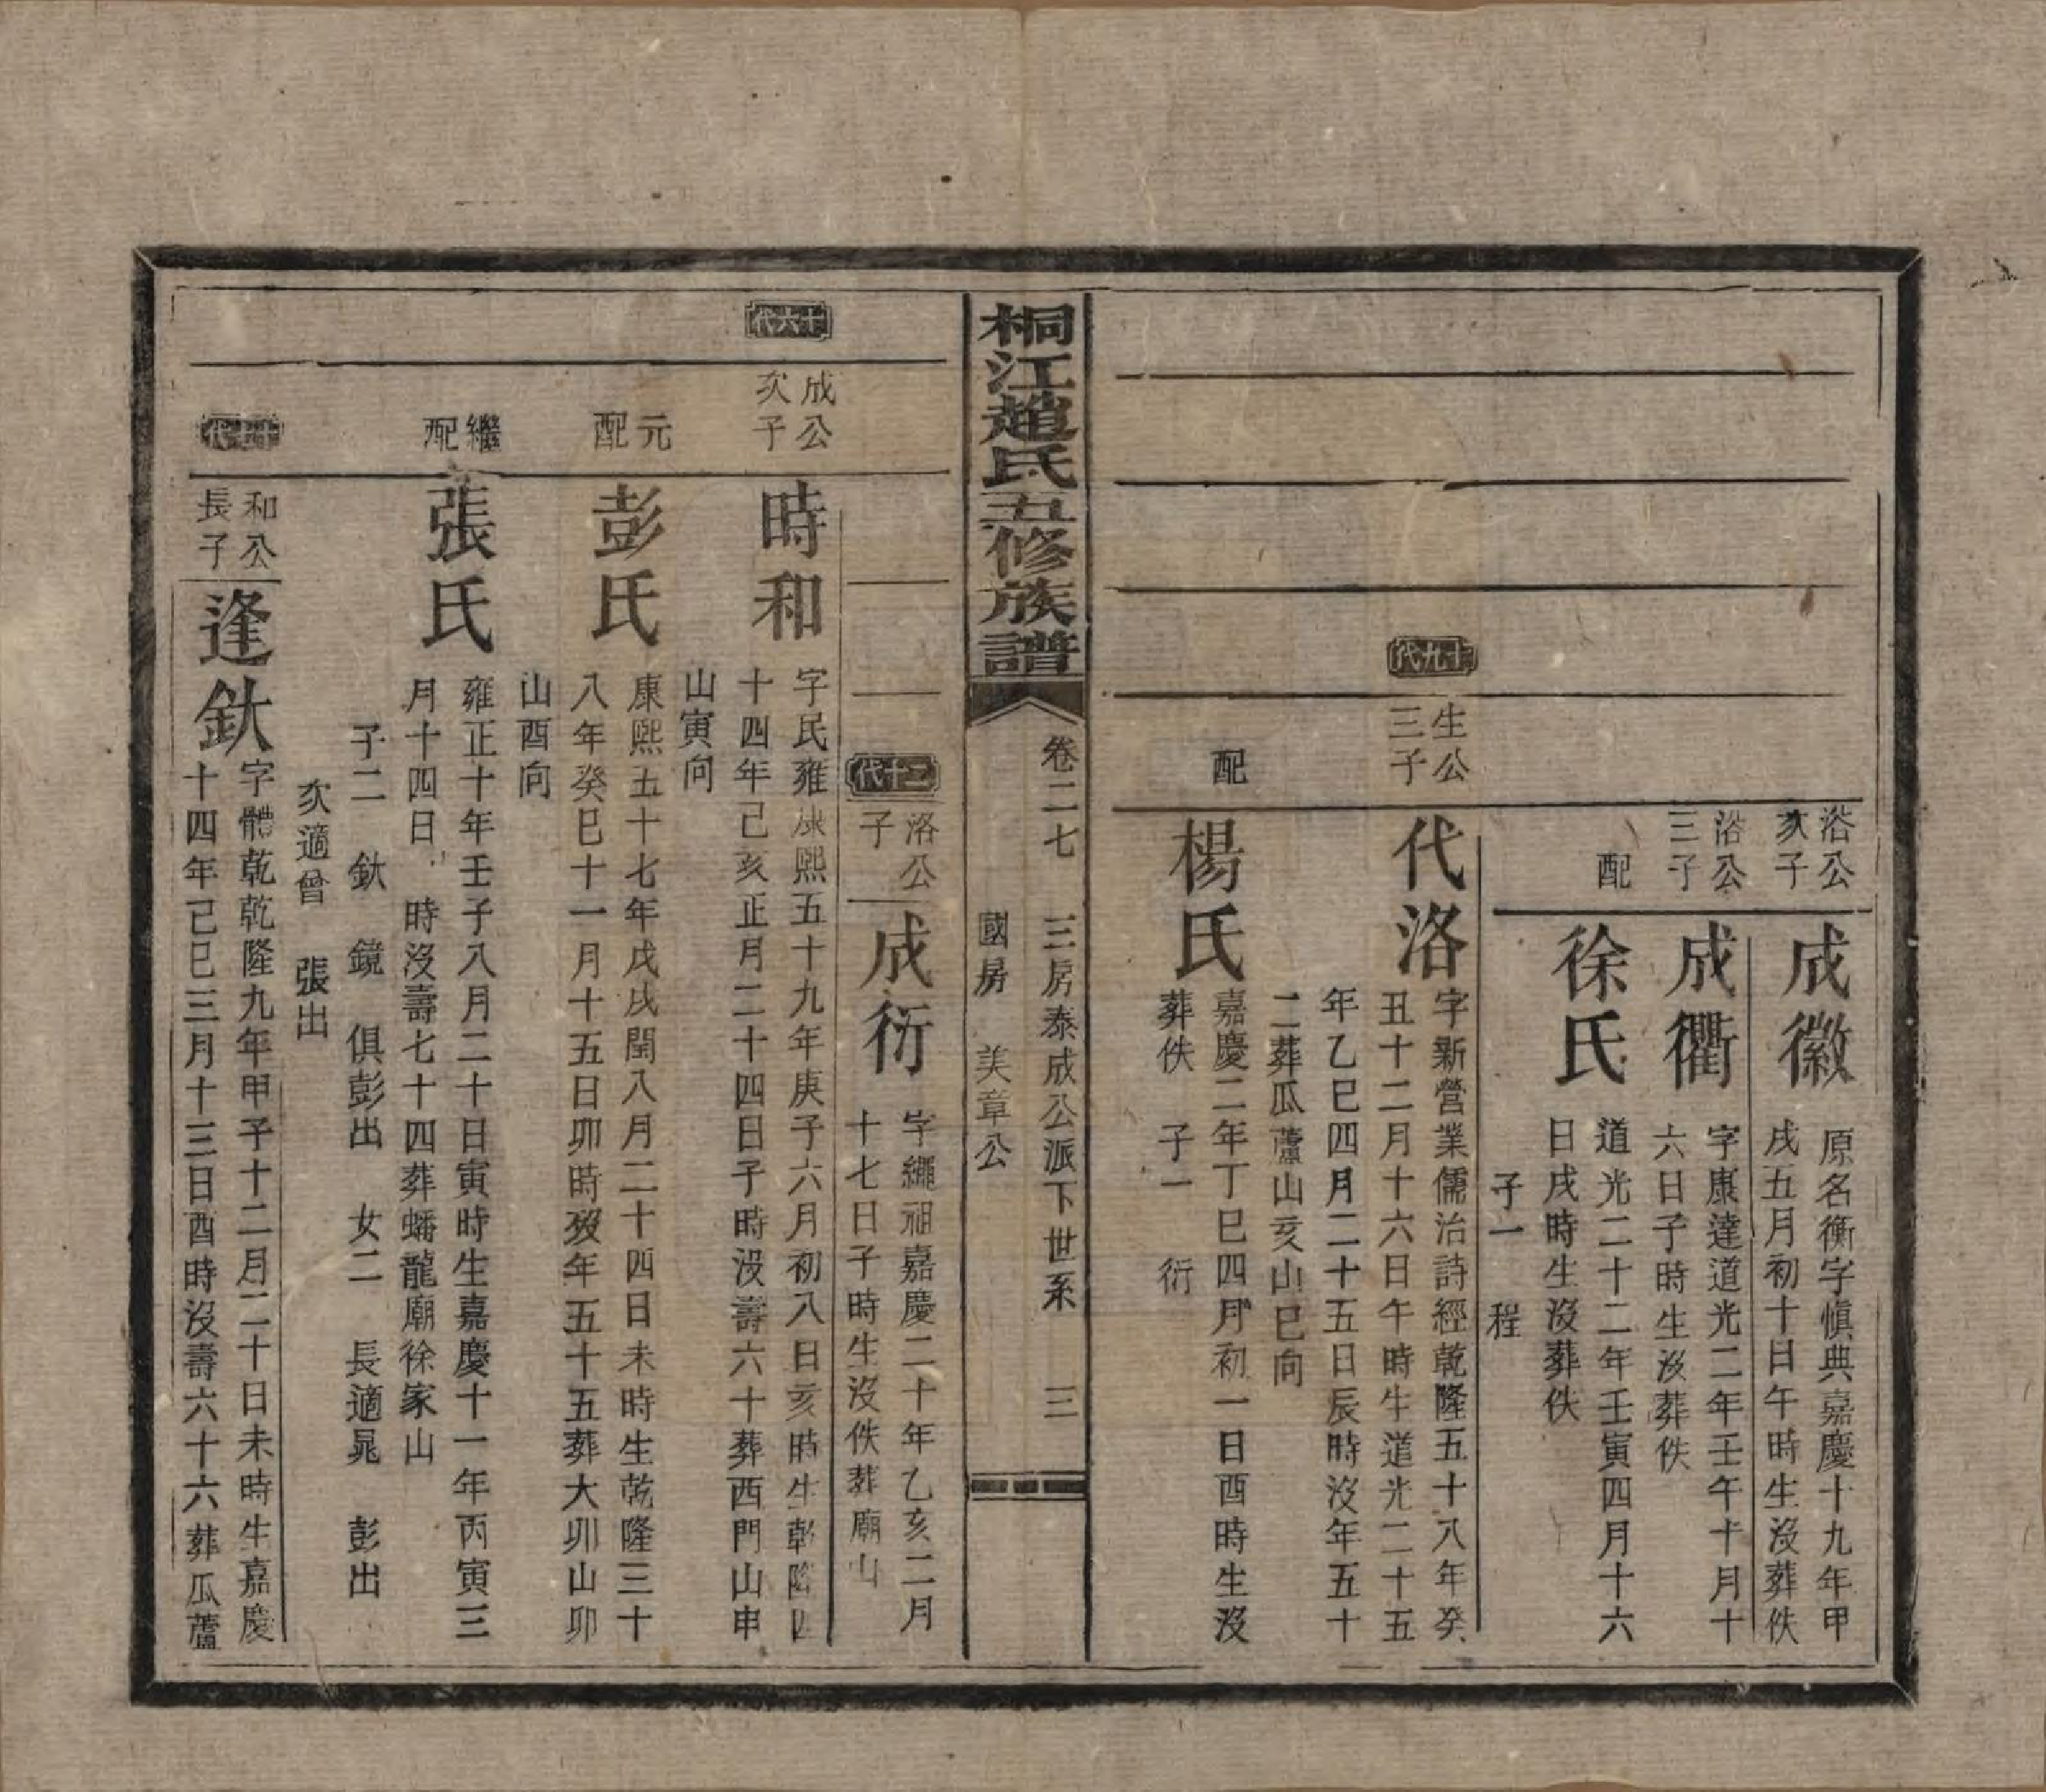 浴公
次子
成徽
原名衡字慎典嘉慶十九年甲
戌五月初十日午時生沒葬佚
浴公
三子
成衢
字康達道光二年壬午十月十
六日子時生沒葬佚
配
徐氏
道光二十二年壬寅四月十六
日戌時生沒葬佚
子一 程
十九代
生公
三子
代洛
字新營業儒治詩經乾隆五十八年癸
丑十二月十六日午時生道光二十五
年乙巳四月二十五日辰時沒年五十
二葬瓜蘆山亥山巳向
配
楊氏
嘉慶二年丁巳四月初一日酉時生沒
葬佚 子一 衍
桐江趙氏五修族譜
卷二七 三房泰成公派下世系 三
國房 美章公
二十代
洛公
子
成衍
字繩祖嘉慶二十年乙亥二月
十七日子時生沒佚葬廟山
十六代
成公
次子
時和
字民雍康熙五十九年庚子六月初八日亥時生乾隆四
十四年己亥正月二十四日子時沒壽六十葬西門山申
山寅向
元
配
彭氏
康熙五十七年戊戌閏八月二十四日未時生乾隆三十
八年癸巳十一月十五日卯時歿年五十五葬大卯山卯
山酉向
繼
配
張氏
雍正十年壬子八月二十日寅時生嘉慶十一年丙寅三
月十四日 時沒壽七十四葬蟠龍廟徐家山
子二 鈥 鏡 俱彭出 女二 長適晁 彭出
次適曾 張出
十七代
和公
長子
逢鈥
字體乾乾隆九年甲子十二月二十日未時生嘉慶
十四年己巳三月十三日酉時沒壽六十六葬瓜蘆